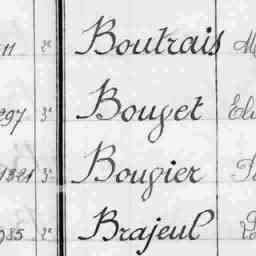 11 2e Boutrais
297 3e Bouyet
1321 3e Bougier
985 2e Brajeul